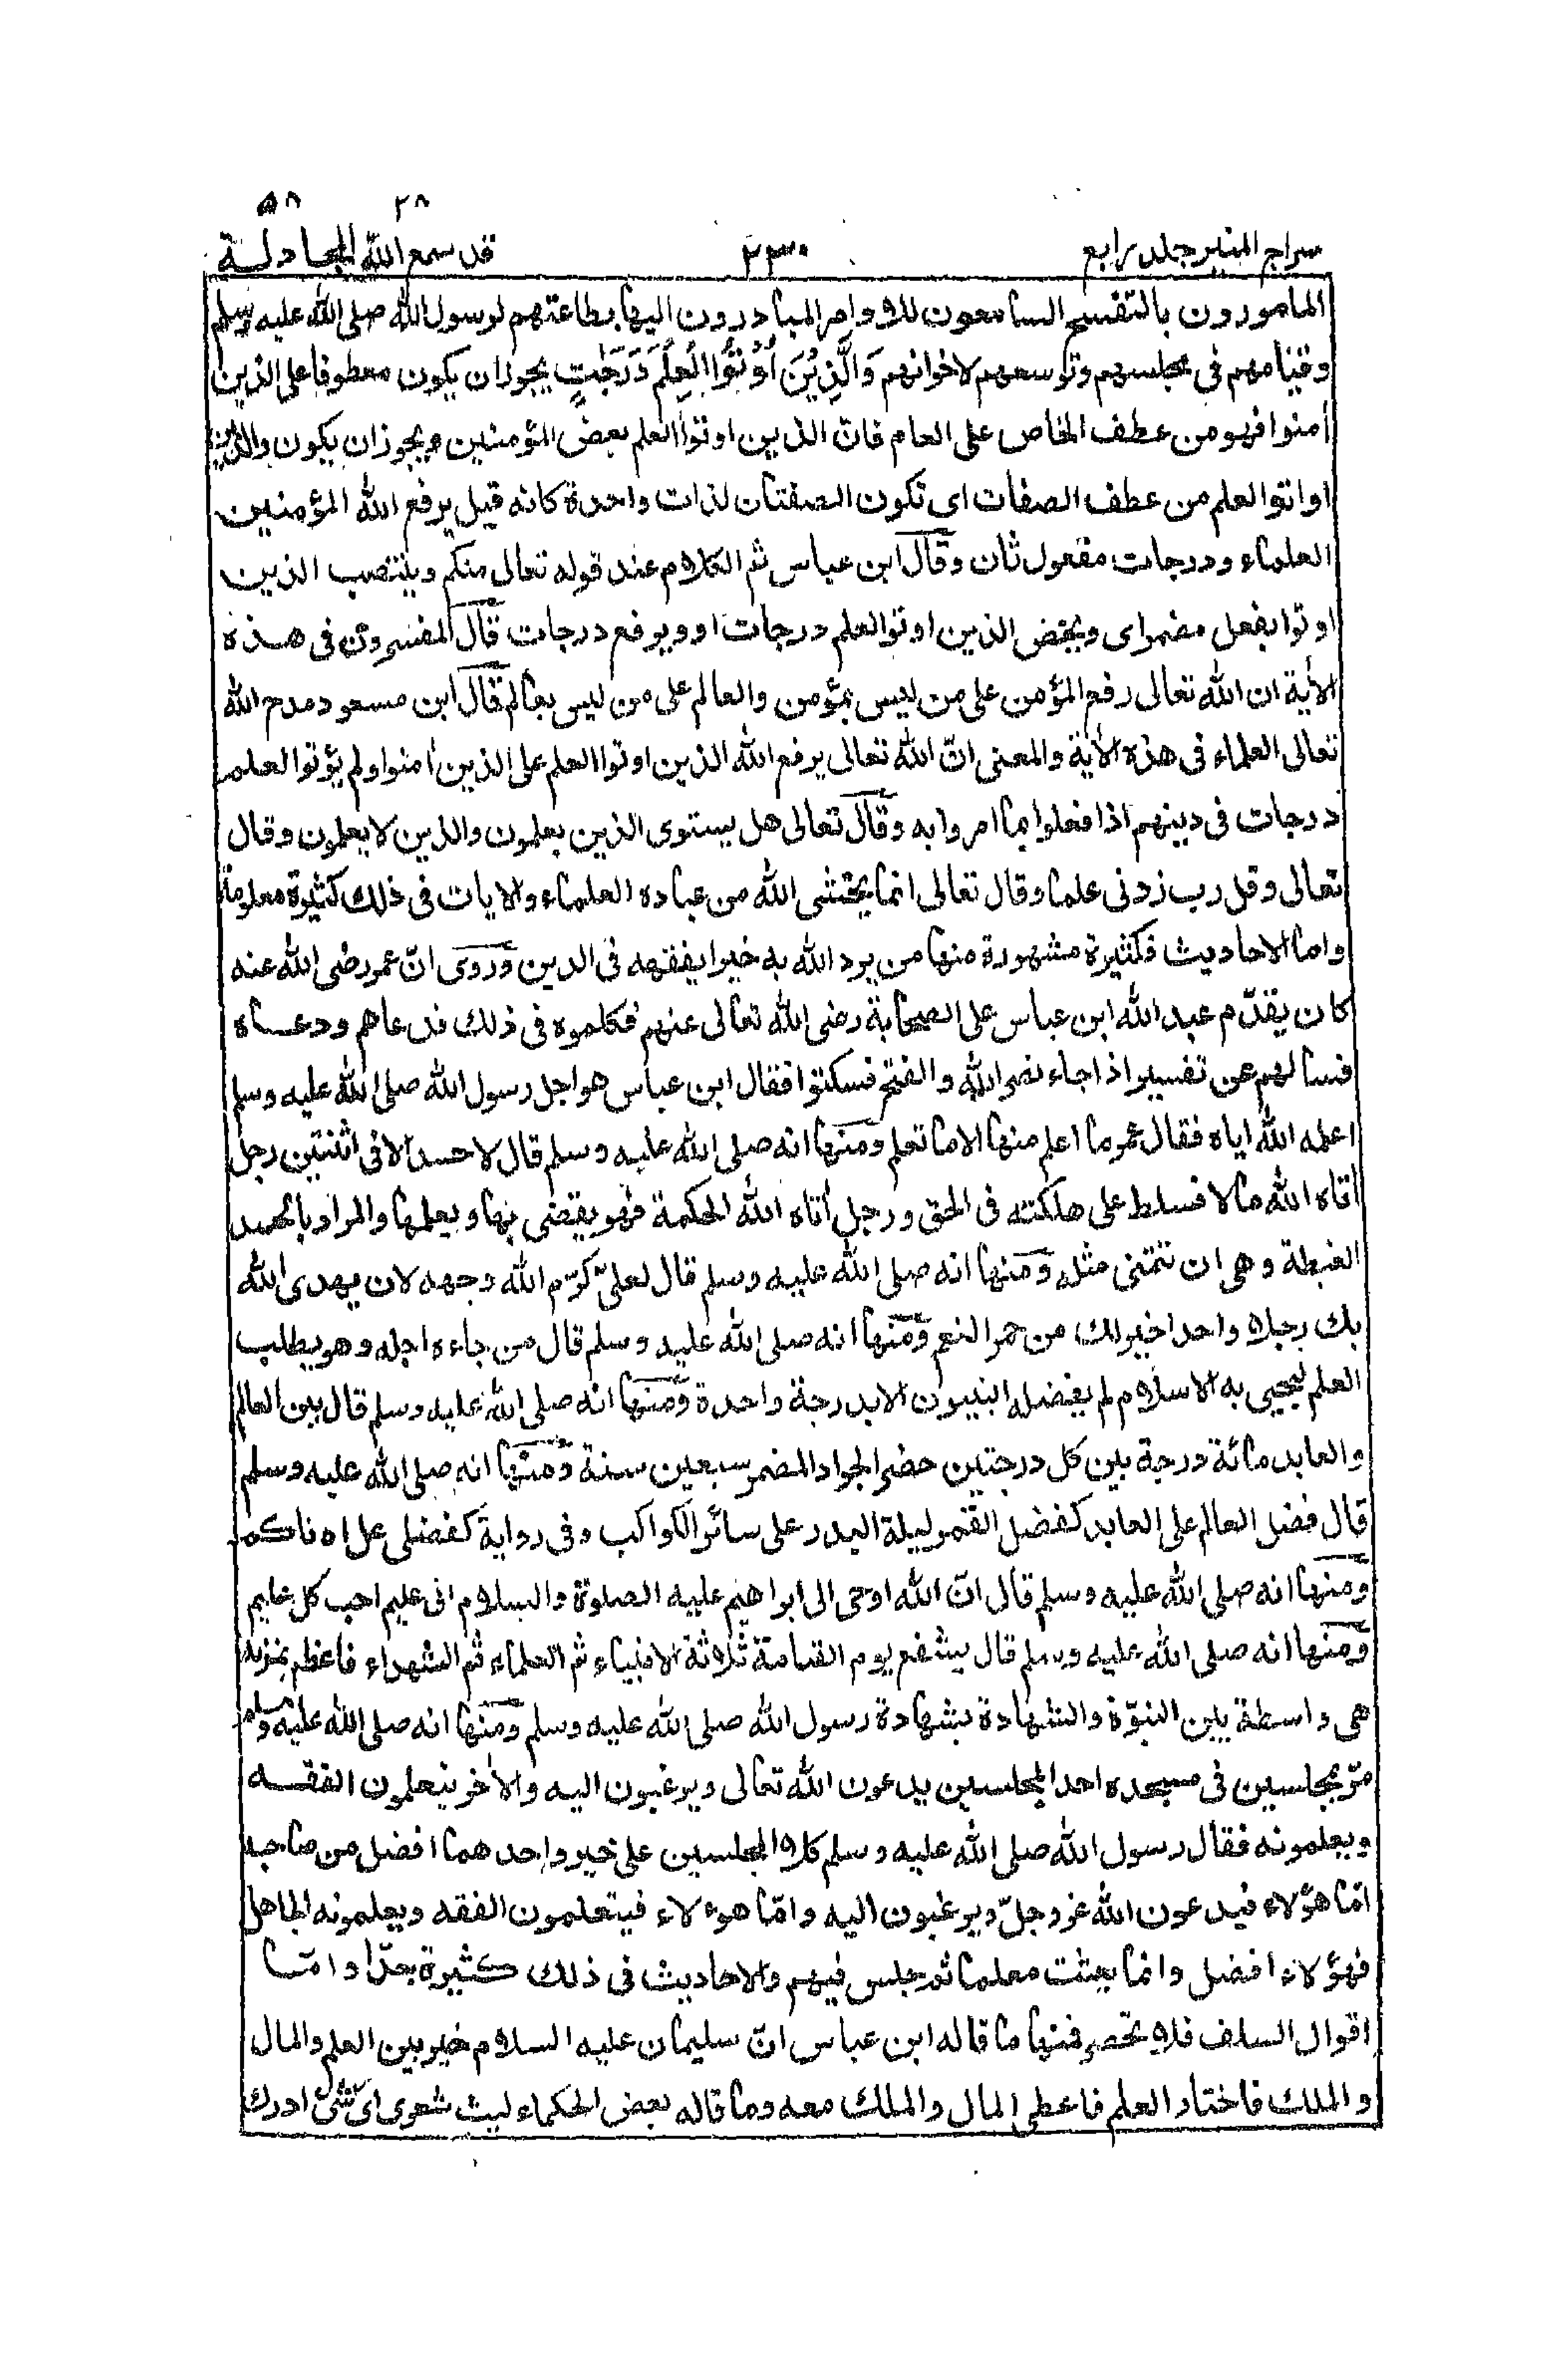 ٢٨ ٥٨
سراج المنير جلد رابع ٢٣٠ قد سمع الله المجادلة
المامورون بالتفسح السامعون للاوامر المبادرون اليها بطاعتهم لرسول الله صلى الله عليه وسلم
وقيامهم فى مجلسهم وتوسعهم لاخوانهم وَالَّذِيْنَ اُوْتُوا الْعِلْمَ دَرَجٰتٍ يجوز ان يكون معطوفا على الذين
اٰمنوا فهو من عطف الخاص على العام فانّ الذين اوتوا العلم بعض المؤمنين ويجوز ان يكون والذين
اواتوا العلم من عطف الصفات اى تكون الصفتان لذات واحدة كانه قيل يرفع الله المؤمنين
العلماء ودرجات مفعول ثان وقال ابن عباس ثم الكلام عند قوله تعالى منكم وينتصب الذين
اوتوا بفعل مضمراى ويخض الذين اوتوا العلم درجات او ويرفع درجات قال المفسرون فى هذه
الاٰية ان الله تعالى رفع المؤمن على من ليس بمؤمن والعالم على من ليس بعالم قال ابن مسعود مدح الله
تعالى العلماء فى هذه الاٰية والمعنى انّ الله تعالى يرفع الله الذين اوتوا العلم على الذين اٰمنوا ولم يؤتوا العلم
درجات فى دينهم اذا فعلوا بما امروا به وقال تعالى هل يستوى الذين يعلمون والذين لا يعلمون وقال
تعالى وقل رب زدنى علما وقال تعالى انما يخشى الله من عباده العلماء والايات فى ذلك كثيرة معلومة
واما الاحاديث فكثيرة مشهورة منها من يرد الله به خيرا يفقهه فى الدين وروى انّ عمر رضى الله عنه
كان يقدّم عبد الله ابن عباس على الصحابة رضى الله تعالى عنهم فكلموه فى ذلك فدعاهم ودعاه
فسالهم عن تفسير اذا جاء نصر الله والفتح فسكتوا فقال ابن عباس هو اجل رسول الله صلى الله عليه وسلم
اعلمه الله اياه فقال عمر ما اعلم منها الا ما تعلم ومنها انه صلى الله عليه وسلم قال لا حسد الا فى اثنتين رجل
اٰتاه الله مالا فسلط على هلكته فى الحق ورجل اٰتاه الله الحكمة فهو يقضى بها ويعلمها والمراد بالحسد
الغبطة وهى ان تتمنى مثله ومنها انه صلى الله عليه وسلم قال لعلىّ كرّم الله وجهه لان يهدى الله
بك رجلا واحدا خير لك من حمر النعم ومنها انه صلى الله عليه وسلم قال من جاءه اجله وهو يطلب
العلم ليحيى به الاسلام لم يفضله النبيون الا بدرجة واحدة ومنها انه صلى الله عليه وسلم قال بين العالم
والعابد مائة درجة بين كل درجتين حضر الجواد المضمر سبعين سنة ومنها انه صلى الله عليه وسلم
قال فضل العالم على العابد كفضل القمر ليلة البدر على سائر الكواكب وفى رواية كفضلى على ادناكم
ومنها انه صلى الله عليه وسلم قال انّ الله اوحى الى ابراهيم عليه الصلوة والسلام انى عليم احب كل عليم
ومنها انه صلى الله عليه وسلم قال يشفع يوم القيامة ثلاثة الانبياء ثم العلماء ثم الشهداء فاعظم بمنزلة
هى واسطة بين النبوّة والشهادة بشهادة رسول الله صلى الله عليه وسلم ومنها انه صلى الله عليه وسلم
مرّ بمجلسين فى مسجده احد المجلسين يدعون الله تعالى ويرغبون اليه والاٰخر يتعلمون الفقه
ويعلمونه فقال رسول الله صلى الله عليه وسلم كلا المجلسين على خير واحدهما افضل من صاحبه
امّا هؤلاء فيدعون الله عز وجلّ ويرغبون اليه وامّا هوءلاء فيتعلمون الفقه ويعلمونه الجاهل
فهؤلاء افضل وانما بعثت معلما ثم جلس فيهم والاحاديث فى ذلك كثيرة جدّا وامّا
اقوال السلف فلا تحصر فمنها ما قاله ابن عباس انّ سليمان عليه السلام خير بين العلم والمال
والملك فاختار العلم فاعطى المال والملك معه وما قاله بعض الحكماء ليت شعرى اىّ شئ ادرك